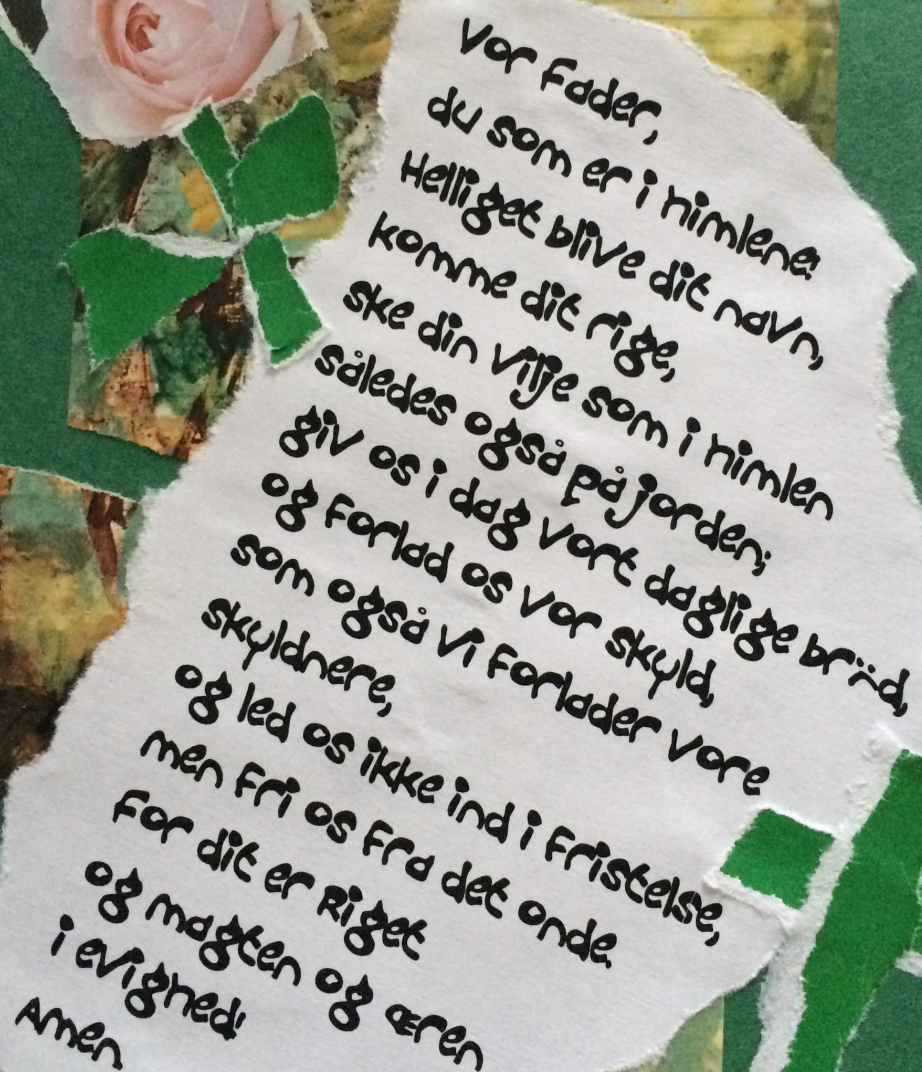 Vor Fader,
du som er i himlene!
Helliget blive dit navn,
komme dit rige,
ske din vilje som i himlen
således også på jorden;
giv os i dag vort daglige brød,
og forlad os vor skyld,
som også vi forlader vore
skyldnere,
og led os ikke ind i fristelse,
men fri os fra det onde.
For dit er Riget
og magten og æren
i evighed!
Amen